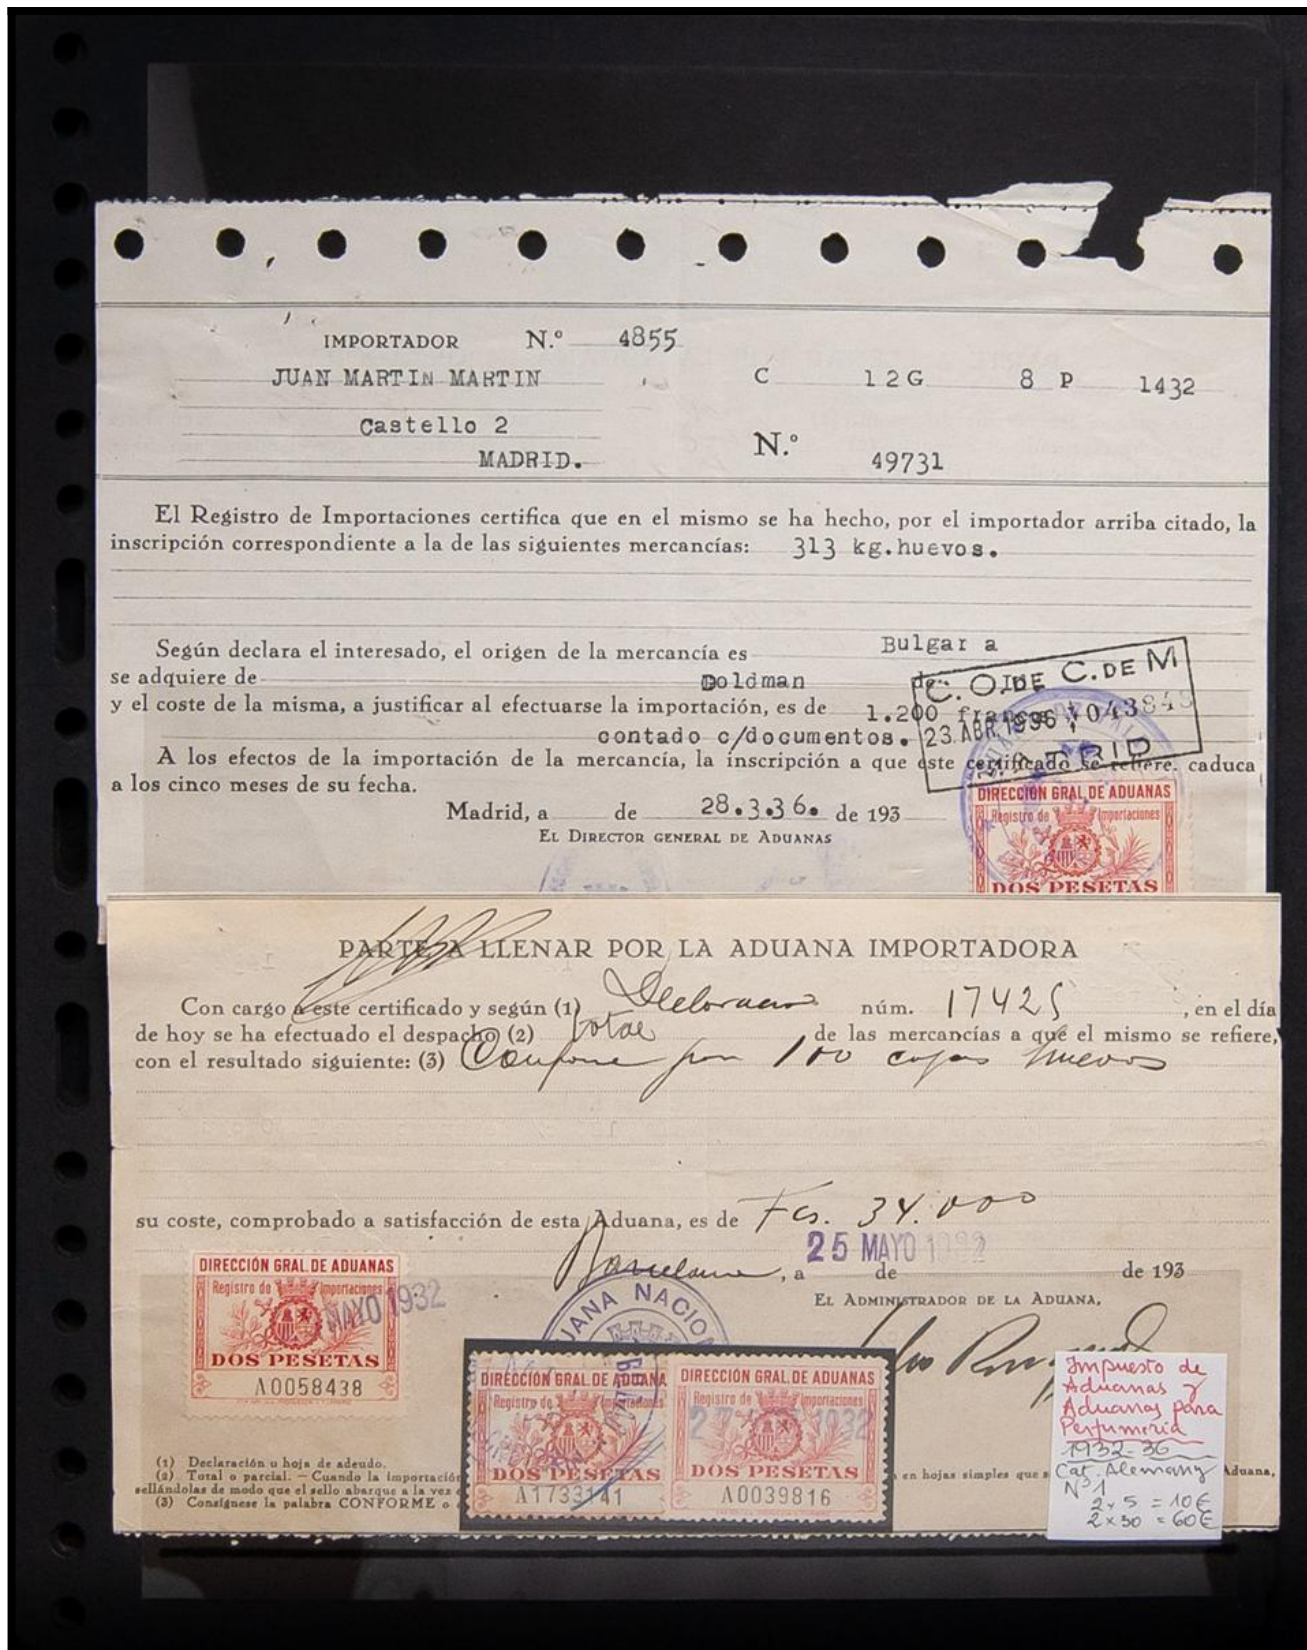 IMPORTADOR N.º 4855
JUAN MARTIN MARTIN C 12G 8 P 1432
Castello 2
MADRID. N.º 49731
El Registro de Importaciones certifica que en el mismo se ha hecho, por el importador arriba citado, la
inscripción correspondiente a la de las siguientes mercancías: 313 kg.huevos.
Según declara el interesado, el origen de la mercancía es Bulgar a
se adquiere de Doldman de
y el coste de la misma, a justificar al efectuarse la importación, es de 1.200 francos
contado c/documentos.
C. O. DE C. DE M
23 ABR. 1936
A los efectos de la importación de la mercancía, la inscripción a que este certificado se refiere, caduca
a los cinco meses de su fecha.
Madrid, a de 28.3.36. de 193
EL DIRECTOR GENERAL DE ADUANAS
DIRECCIÓN GRAL DE ADUANAS
Registro de Importaciones
DOS PESETAS
PARTE A LLENAR POR LA ADUANA IMPORTADORA
Con cargo a este certificado y según (1) núm. 17425, en el día
de hoy se ha efectuado el despacho (2) total de las mercancías a que el mismo se refiere,
con el resultado siguiente: (3) Conforme por 100 cajas huevos
su coste, comprobado a satisfacción de esta Aduana, es de Fcs. 34.000
25 MAYO 1932
Barcelona, a de de 193
EL ADMINISTRADOR DE LA ADUANA,
ADUANA NACIO
DIRECCIÓN GRAL. DE ADUANAS
Registro de Importaciones
MAYO 1932
DOS PESETAS
A0058438
DIRECCIÓN GRAL DE ADUANA
Registro de Importaciones
DOS PESETAS
A1733141
DIRECCIÓN GRAL DE ADUANAS
Registro de Importaciones
1932
DOS PESETAS
A0039816
(1) Declaración u hoja de adeudo.
(2) Total o parcial. — Cuando la importación en hojas simples que s Aduana,
sellándolas de modo que el sello abarque a la vez
(3) Consígnese la palabra CONFORME o
Impuesto de
Aduanas y
Aduanas para
Perfumeria
1932-36
Cat. Alemany
Nº 1
2 x 5 = 10 €
2 x 30 = 60 €